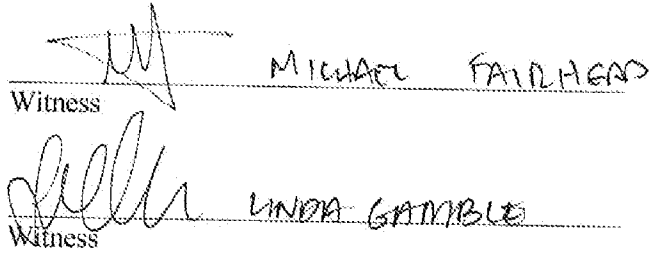 MICHAEL FAIRHEAD
Witness
LINDA GAMBLE
Witness